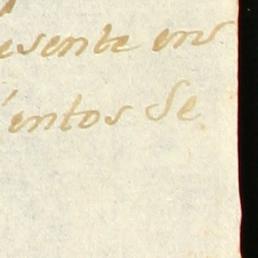 esente en
entos de